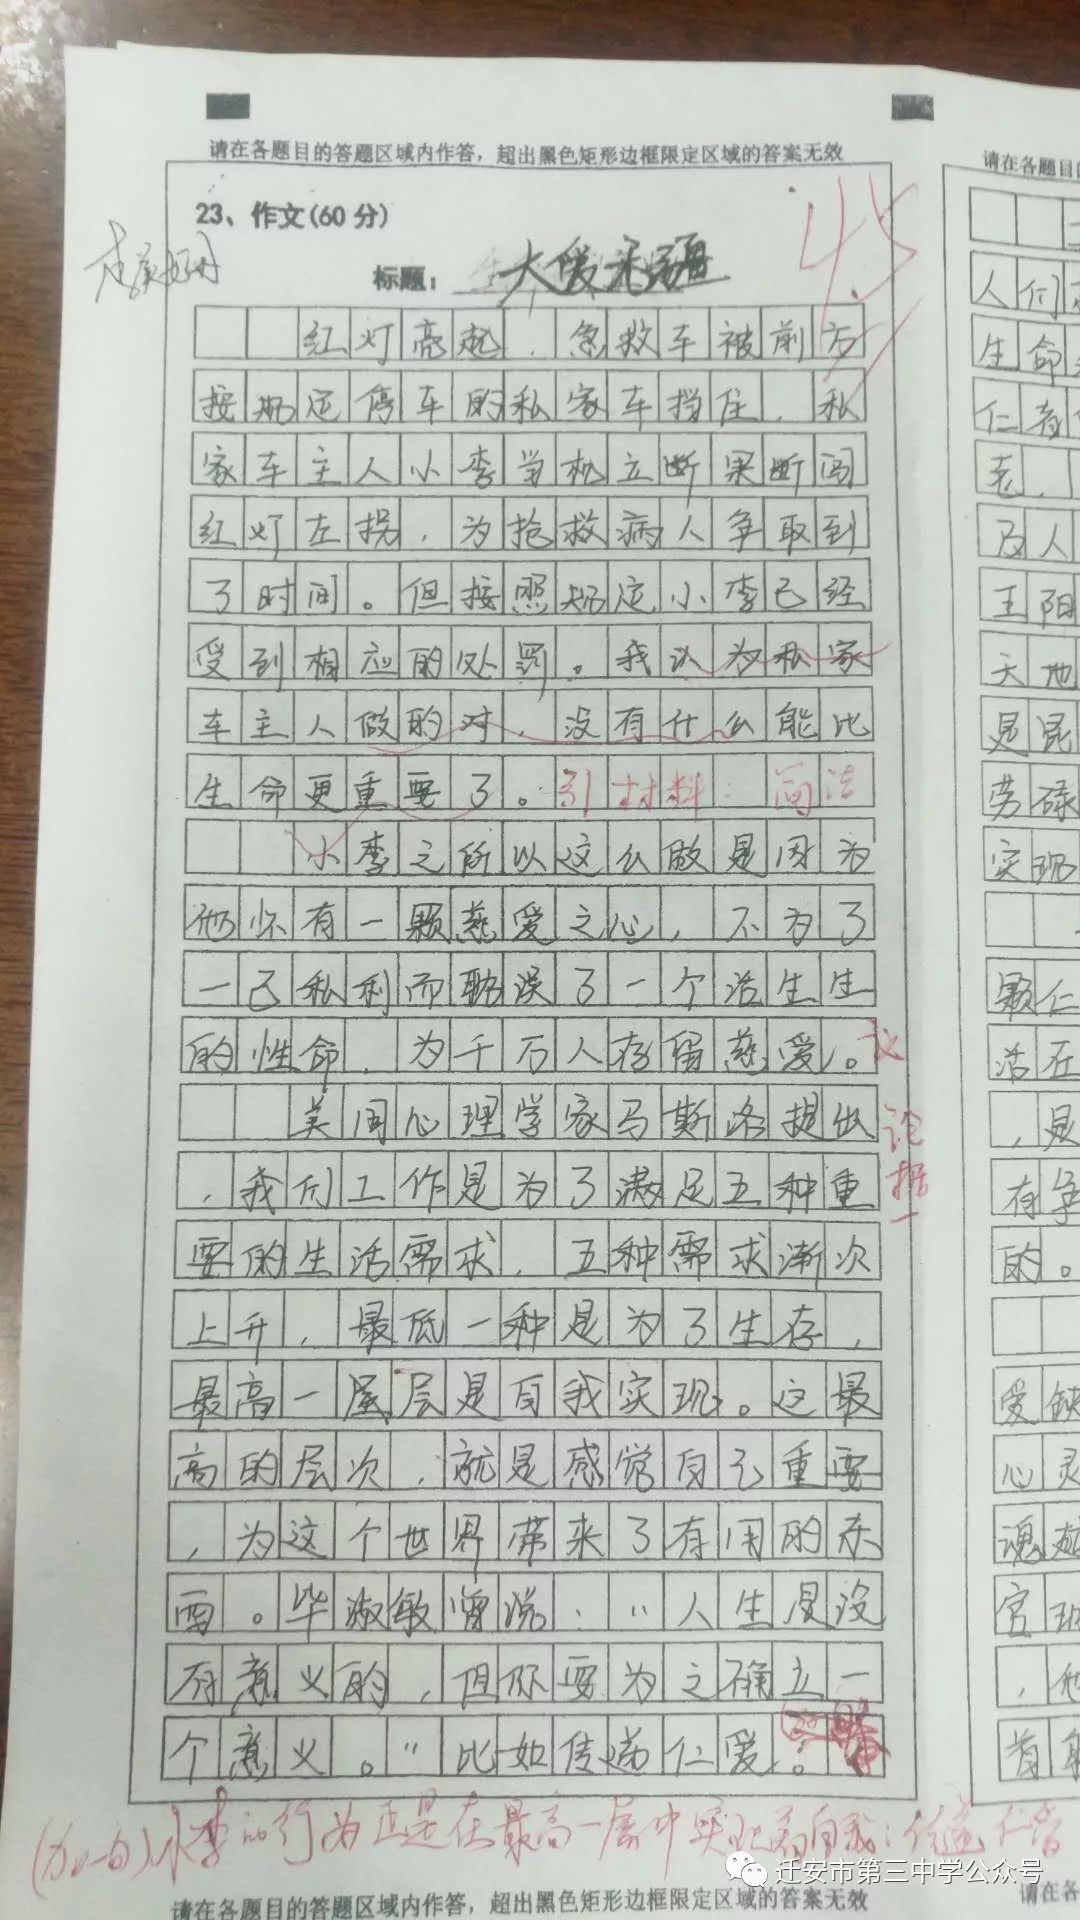 请在各题目的答题区域内作答，超出黑色矩形边框限定区域的答案无效
请在各题目的
23、作文(60分)
45
标题：大爱无疆
红灯亮起，急救车被前方
按规定停车的私家车挡住，私
家车主人小李当机立断果断闯
红灯左拐，为抢救病人争取到
了时间。但按照规定小李已经
受到相应的处罚。我认为私家
车主人做的对，没有什么能比
生命更重要了。引材料：简洁
小李之所以这么做是因为
他怀有一颗慈爱之心，不为了
一己私利而耽误了一个活生生
的性命，为千万人存留慈爱。
论据一
美国心理学家马斯洛提出
，我们工作是为了满足五种重
要的生活需求，五种需求渐次
上升，最低一种是为了生存，
最高一层层是自我实现。这最
高的层次，就是感觉自己重要
，为这个世界带来了有用的东
西。毕淑敏曾说：“人生是没
有意义的，但你要为之确立一
个意义。”比如传递仁爱。
(加一句)小李的行为正是在最高一层中实现着自我：传递仁爱
请在各题目的答题区域内作答，超出黑色矩形边框限定区域的答案无效
请在各
人们
生命
仁者
老，
及人
王阳
天地
是昆
劳碌
实现
颗仁
活在
，是
有争
的。
受
心灵
魂
官
，他
首
迁安市第三中学公众号